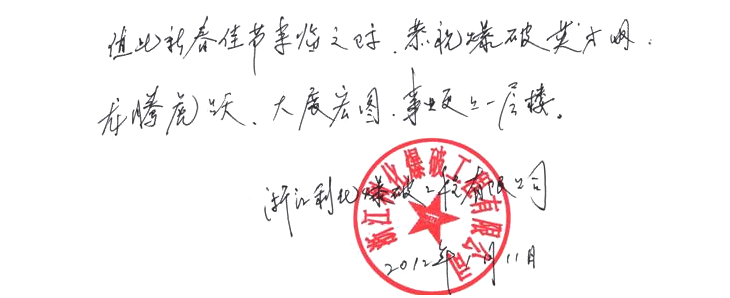 值此新春佳节来临之时，恭祝爆破英才网：
龙腾虎跃、大展宏图、事业更上一层楼。
浙江利化爆破工程有限公司
浙江利化爆破工程有限公司
2012年1月11日